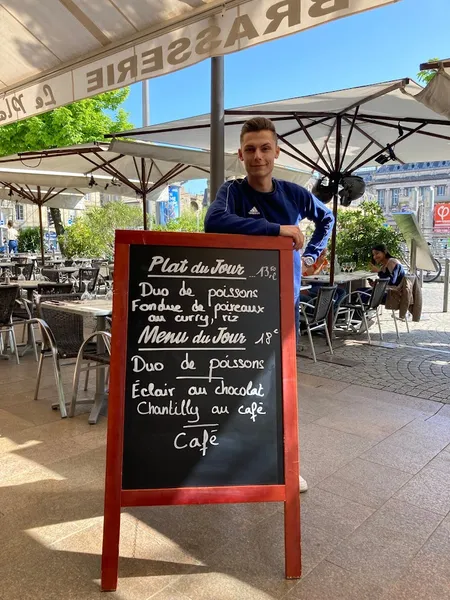 BRASSERIE
Le
Plat du Jour ... 13,50€
Duo de poissons
Fondue de poireaux
au curry, riz
Menu du Jour 18€
Duo de poissons
Éclair au chocolat
Chantilly au café
Café